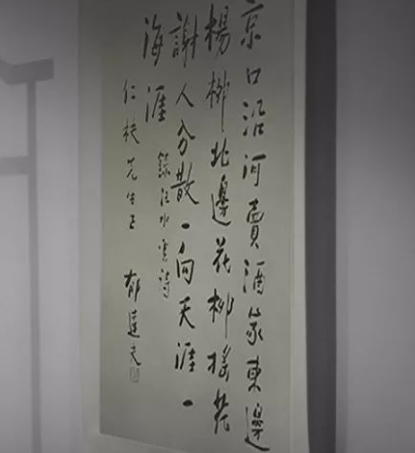 京口沿河賣酒家東邊
楊柳北邊花柳搖花
謝人分散一向天涯一
海涯 錄汪水雲詩
仁 先生正 郁達夫